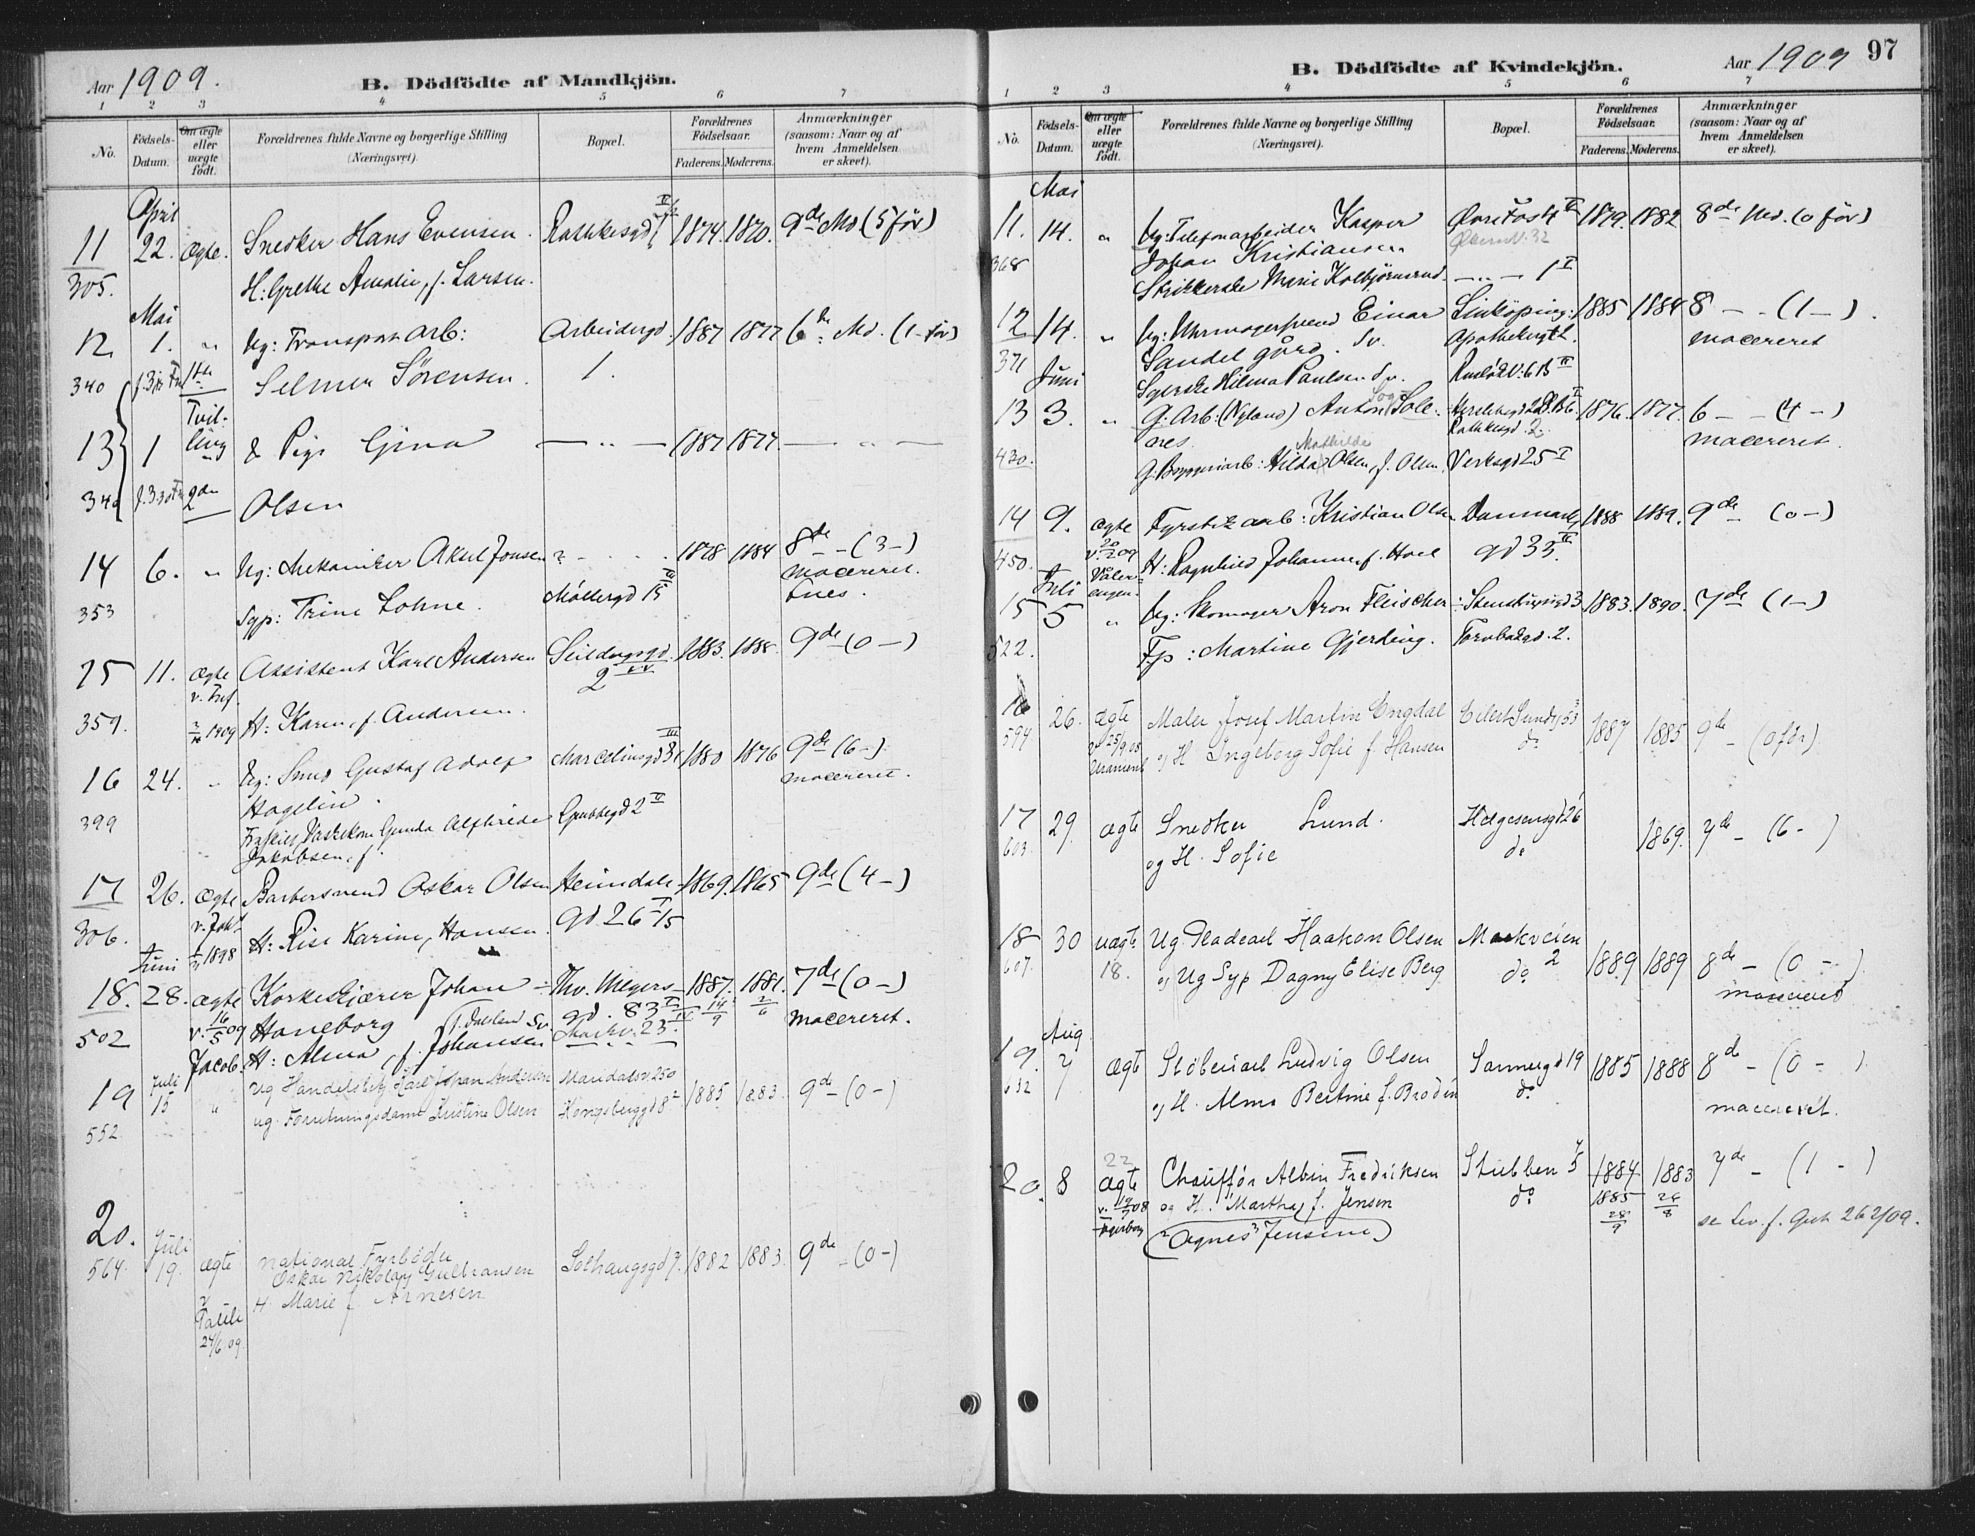 Aar 1909.
B. Dödfödte af Mandkjön.
1 2 3 4 5 6 7
No.
Fødsels-Datum.
Om ægte eller uægte født.
Forældrenes fulde Navne og borgerlige Stilling (Næringsvei).
Bopæl.
Forældrenes Fødselsaar.
Faderens. Moderens.
Anmærkninger (saasom: Naar og af hvem Anmeldelsen er skeet).
April
11 22. ægte. Snedker Hans Evensen. Rathkesgd 7 1874 1870. 9de Md (5 før)
305. H: Grethe Amalie, f. Larsen.
Mai
12 1. " Ug: Transportarb: Arbeidergd. 1887 1877 6te Md. (1 før)
340 1ste Selmer Sörensen. 1.
Tvil-
13 1 ling & Pige Gina — " — 1887 1877. — " —
340 2den Olsen
14 6. " Ug: Mekaniker Aksel Jonsen ? - 1878 1884 8de - (3 -)
macereret.
353 Syp: Trine Lohne. Møllergd 15 Lues.
15 11. ægte Assistent Karl Andersen Seildugsgd. 1883. 1888. 9de (0 -)
v. Tref. 2
359. 1909 H: Karen, f. Andersen.
16 24. " Ug: Smed Gustaf Adolf Marcelinsgd 8 III 1880 1876 9de (6 -)
Hagelin. macereret.
399 Gunda Alfhilde Grubbegd 2 IV
Jakobsen, f.
17 26. ægte Barbersvend Oskar Olsen Heimdals- 1869. 1865 9de (4 -)
306. v. Joh. gd 26 I 15
1898 H: Rise Karine, Hansen.
Juni
18. 28. ægte Korkeskjærer Johan Thv. Meyers- 1887. 1881. 7de (0 -)
v. 16/5 09 Haneborg gd. 83 14/9 2/6 macereret.
502 Jacob. H: Alma, f. Johansen Markv. 23.
19 Juli 15 " Ug Handelsbetj. Karl Johan Andersen Maridalsv. 250 1885 1883. 9de - (0 -)
552. ug. Forretningsdame Kristine Olsen Kongsberggd 8
20. Juli
564. 19. ægte national Fyrbøder Solhaugsgd 7. 1882 1883. 9de - (0 -)
Oskar Nikolay Gulbransen
H. Marie f Arnesen
v Pauli
24/6 09
97
B. Dödfödte af Kvindekjön.
Aar 1909
1 2 3 4 5 6 7
No.
Fødsels-Datum.
Om ægte eller uægte født.
Forældrenes fulde Navne og borgerlige Stilling (Næringsvei).
Bopæl.
Forældrenes Fødselsaar.
Faderens. Moderens.
Anmærkninger (saasom: Naar og af hvem Anmeldelsen er skeet).
Mai
11. 14. " Ug: Telefonarbeider Kasper Øvre Foss 4 1879. 1882 8de Md. (0 før)
Johan Kristiansen Økernv. 32
368 Strikkerske Marie Kolbjörnsrud. — " — 1 I
12 14. " Ug: Uhrmagersvend Einar Linköping: 1885 1884 8 - - (1 -).
Sandelgård. Sv. Apothekergt 2. macereret
371 Syerske Hilma Paulsen Sv. Ruseløkv: 61
Juni
13 3. " G. Arb: (Nyland) Anton Solle- 1876. 1877. 6 - - (4 -)
nes. Rathkesgd. 2. macereret.
430. G. Bryggeriarb: Hilda Mathilde Olsen, f. Olsen, Verksgd 25 I
14 9. ægte Fyrstikarb: Kristian Olsen Danmarks- 1888 1889. 9de (0 -)
450. v. 20/2 09 H: Ragnhild Johanne f. Hoel gd 33 III
Vålerengen.
Juli
15 5 " Ug: Skomager Aron Fleischer Stenstrupsgd 3 1883. 1890. 7de (1 -)
522. Fp: Martine Gjerding. Tornbakgd. 2.
16 26. ægte Maler Josef Martin Engdal Eilert Sundtsgd 53 1887 1885 9de - (0 før)
594 25/9 08 og H Ingeborg Sofie f. Hansen do
Uranienb
17 29. ægte Snedker Lund. Helgesensgd 26 1869. 7de - (6 -)
603. og H. Sofie do
18 30 uægte Ug. Pladearb Haakon Olsen Markveien 2 1889 1889 8de - (0 -)
607. 18. og Ug Syp Dagny Elise Berg do macereret
Aug.
19. 7 ægte Støberiarb Ludvig Olsen Sannergd 19 1885 1888 8de - (0 -)
632 og H. Alma Bertine f. Brodén do macereret.
22
20. 8 ægte Chauffør Albin Fredriksen Stubben 5 1884 1883 7de - (1 -)
v. 12/7 08 og H. Martha, f. Jensen do 1885 28/9 26/8
(Agnes Jensine) se Lev. f. Gut 262/09.